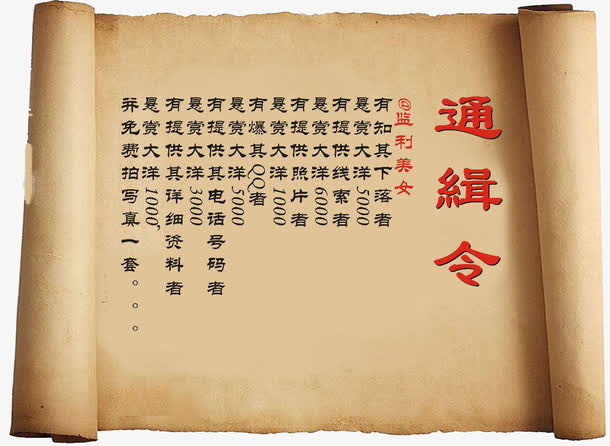 通緝令
@监利美女
有知其下落者
悬赏大洋5000
有提供线索者
悬赏大洋6000
有提供照片者
悬赏大洋1000
有爆其QQ者
悬赏大洋5000
有提供其电话号码者
悬赏大洋3000
有提供其详细资料者
悬赏大洋1000,
并免费拍写真一套。。。